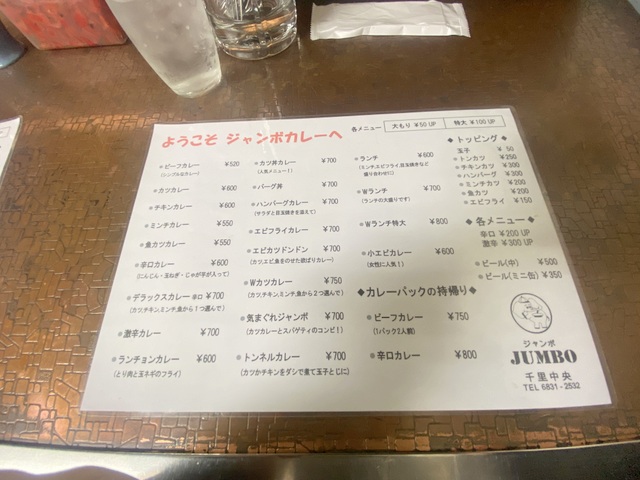 ようこそ ジャンボカレーへ
各メニュー 大もり ¥50 UP 特大 ¥100 UP
●ビーフカレー ¥520
(シンプルなカレー)
●カツカレー ¥600
●チキンカレー ¥600
●ミンチカレー ¥550
●魚カツカレー ¥550
●辛口カレー ¥600
(にんじん・玉ねぎ・じゃが芋が入って)
●デラックスカレー 辛口 ¥700
(カツ、チキン、ミンチ、魚から1つ選んで)
●激辛カレー ¥700
●ランチョンカレー ¥600
(とり肉と玉ネギのフライ)
●カツ丼カレー ¥700
(人気メニュー!)
●バーグ丼 ¥700
●ハンバーグカレー ¥700
(サラダと目玉焼きを添えて)
●エビフライカレー ¥700
●エビカツドンドン ¥700
(カツ、エビ、魚をのせた欲ばりカレー)
●Wカツカレー ¥750
(カツ、チキン、ミンチ、魚から2つ選んで)
●気まぐれジャンボ ¥700
(カツカレーとスパゲティのコンビ!)
●トンネルカレー ¥700
(カツかチキンをダシで煮て玉子とじに)
●ランチ ¥600
(ミンチ、エビフライ、目玉焼きなど
盛り合わせに)
●Wランチ ¥700
(ランチの大盛りです)
●Wランチ特大 ¥800
●小エビカレー ¥600
(女性に人気!)
◆カレーパックの持帰り◆
●ビーフカレー ¥750
(1パック2人前)
●辛口カレー ¥800
◆トッピング◆
玉子 ¥50
●トンカツ ¥250
●チキンカツ ¥300
●ハンバーグ ¥300
●ミンチカツ ¥200
●魚カツ ¥200
●エビフライ ¥150
◆各メニュー◆
辛口 ¥200 UP
激辛 ¥300 UP
●ビール(中) ¥500
●ビール(ミニ缶) ¥350
ジャンボ
JUMBO
千里中央
TEL 6831-2532